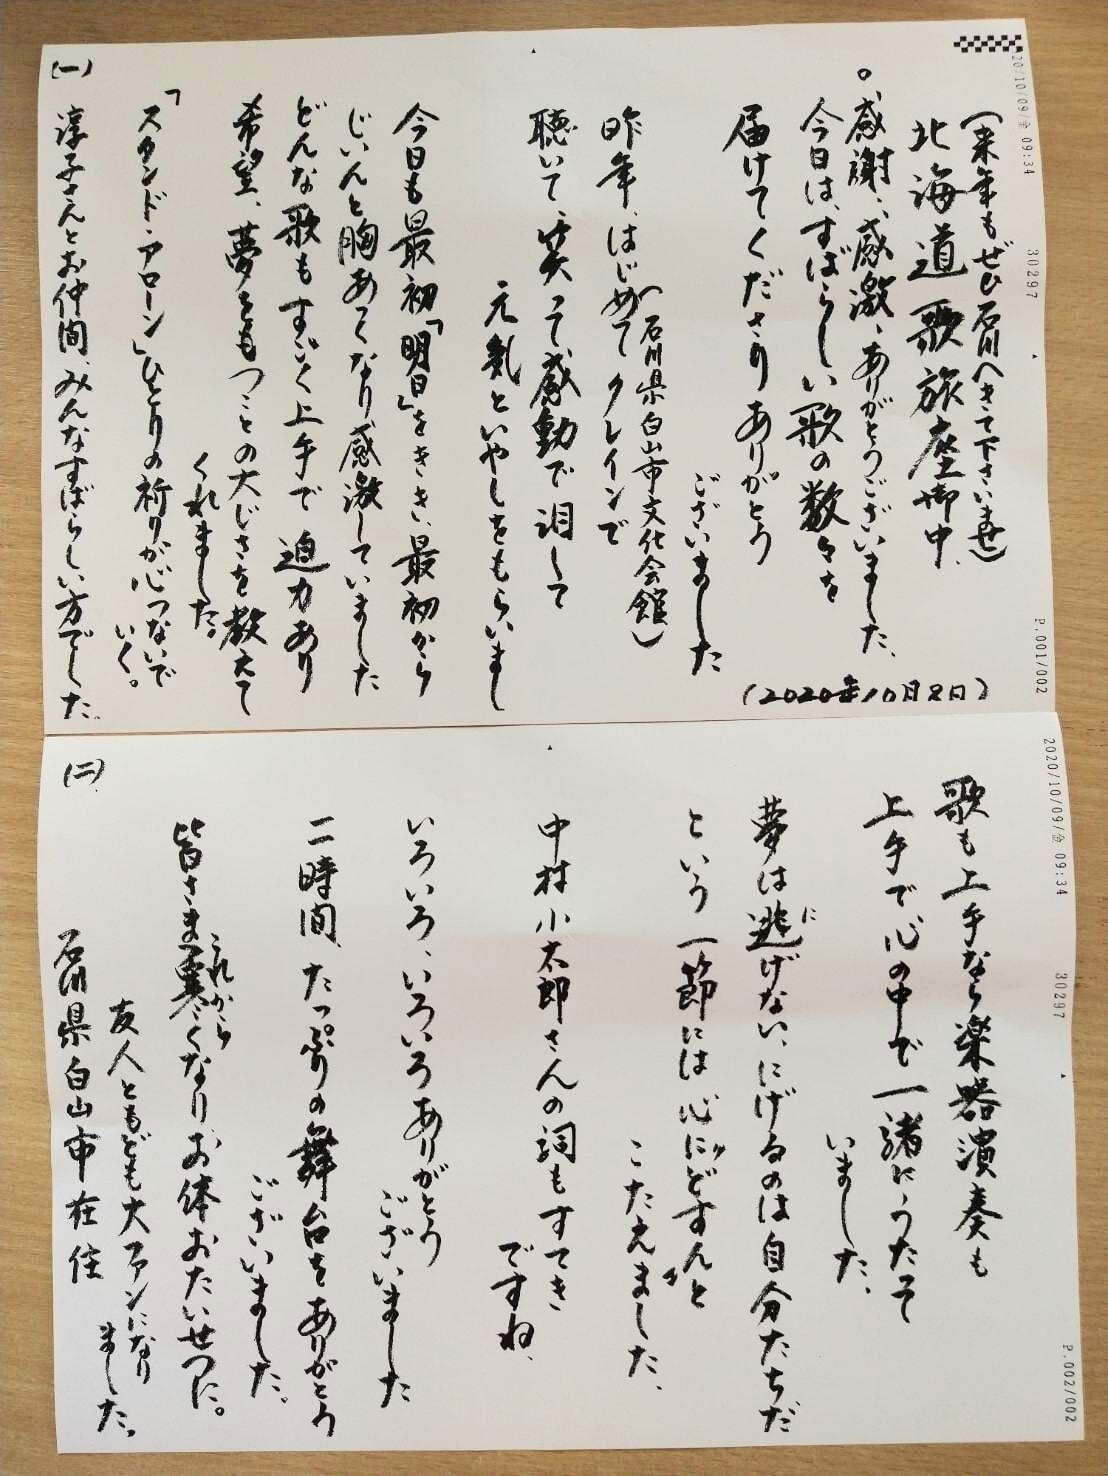 20/10/09/金 09:34
30297
P.001/002
(来年もぜひ石川へきて下さいませ)
北海道歌旅座御中、
○感謝、感激、ありがとうございました、
今日は、すばらしい歌の数々を
届けてくださりありがとう
ございました
(2020年10月8日)
昨年、はじめてクレインで
(石川県白山市文化会館)
聴いて、笑って、感動で泪して
元気といやしをもらいまし
今日も最初「明日」をきき、最初から
じいんと胸あつくなり感激していました
どんな歌もすごく上手で迫力あり
希望、夢をもつことの大じさを教えて
くれました。
「スタンド・アローン」ひとりの祈りが心つないで
いく。
淳子さんとお仲間、みんなすばらしい方でした。
(一)
2020/10/09/金 09:34
30297
P.002/002
歌も上手なら楽器演奏も
上手で心の中で一緒にうたって
いました、
夢は逃げない、にげるのは自分たちだ
に
という一節には心にどすんと
こたえました、
中村小太郎さんの詞もすてき
ですね、
いろいろ、いろいろありがとう
ございました
二時間、たっぷりの舞台をありがとう
ございました。
これから
皆さま寒くなりお体おたいせつに。
友人ともども大ファンになり
ました。
石川県白山市在住
(二)